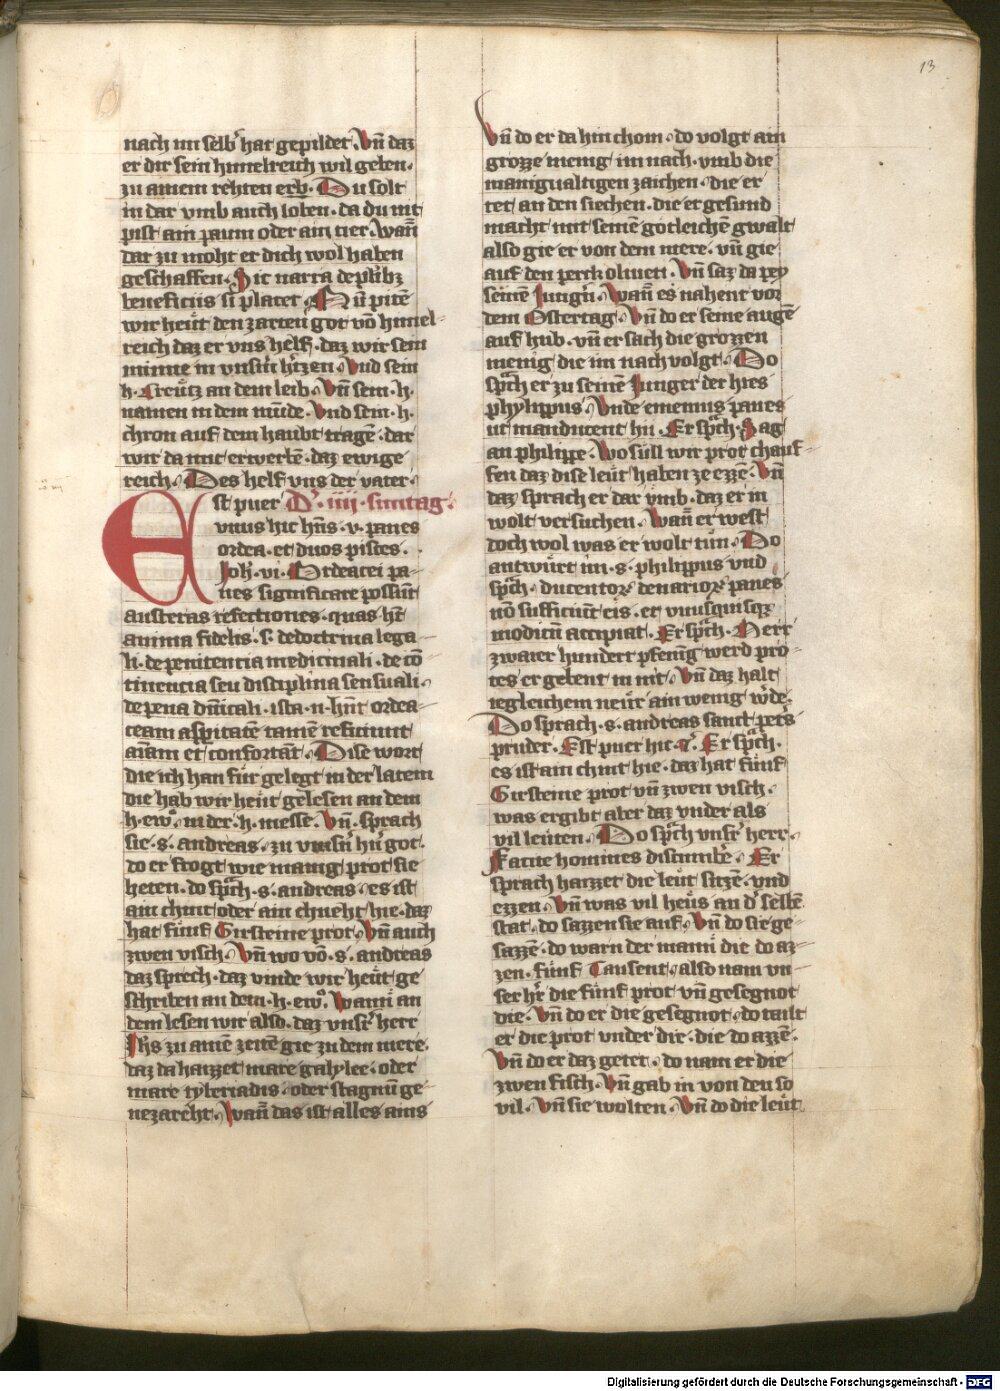 13
nach im selbͬ hat gepildet. Vn̄ daz
er dir sein himelreich wil geben.
zu ainem rehten erb. Du solt
in dar vmb auch loben. da du nit
pist ain paum oder ain tier. Wan̄
dar zu moht er dich wol haben
geschaffen. Hic narra de pluͥbz
beneficiis si placet. Nu pitē
wir heut den zarten got vō himel-
reich daz er vns helf. daz wir sein
minne in vnsͬn hͬtzen. Vnd sein
h. Creutz an dem leib. Vn̄ sein. h.
namen in dem munde. Vnd sein. h.
chron auf dem haubt tragē. daz
wir da mit erwerbē. daz ewige
reich. Des helf vns der vater.
Est puer Dͬ. iiii. suntag.
vnus hic hn̄s. v. panes
ordea. et duos pisces.
Joh̄. vi. Ordeacei pa-
nes significare possūt
austeras refectiones. quas hꝫ
anima fidelis. s. de doctrina lega-
li. de penitencia medicinali. de cō-
tinencia seu disciplina sensuali.
de pena dn̄icali. ista. n. hn̄t ordea-
ceam asp̄itatē tamē reficiunt
aīam et confortāt. Dise wort
die ich han fur gelegt in der latein
die hab wir heut gelesen an dem
h. ewͦ. in der. h. messe. Vn̄. sprach
sie. s. andreas. zu vnsͬm hͬn got.
do er frogt wie manig prot sie
heten. do sp̄ch. s. andreas. es ist
ain chint oder ain chneht hie. daz
hat funf Girsteine prot. Vn̄ auch
zwen visch. Vn̄ wo vō. s. andreas
daz sprech. daz vinde wir heut ge
schriben an dem. h. ewͦ. Wann an
dem lesen wir also. daz vnsͬ herr
Jhs zu ainē zeitē gie zu dem mere.
daz da haizzet mare galylee. oder
mare tyberiadis. oder stagnū ge-
nezareth. Wan̄ das ist alles ains
Vn̄ do er da hin chom. do volgt ain
grozze menig im nach. vmb die
manigualtigen zaichen. die er
tet an den siechen. die er gesund
macht mit seinē gotleichē gwalt
also gie er von dem mere. vn̄ gie
auf den perck oliueti. Vn̄ saz da pey
seinē Jungͬn. Wan̄ es nahent vor
dem Ostertag. Vn̄ do er seine augē
auf hub. vn̄ er sach die grozzen
menig die im nach volgt. Do
sp̄ch er zu seinē Junger der hies
phylippus. Vnde ememus panes
ut manducent hii. Er sp̄ch. Sag
an philippe. Wo sull wir prot chauf-
fen daz dise leut haben ze ezzē. Vn̄
daz sprach er dar vmb. daz er in
wolt versuchen. Wan̄ er west
doch wol was er wolt tun. Do
antwurt im. s. philippus vnd
sp̄ch. ducentoꝝ denarioꝝ panes
nō sufficiūt eis. et vnusquisqꝫ
modicū accipiat. Er sp̄ch. Herr
zwaier hundert pfenig werd pro-
tes ergebent in nit. Vn̄ daz halt
iegleichem neur ain wenig wͬde.
Do sprach. s. andreas sanct petͬs
pruder. Est puer hic. ⁊c̄. Er sp̄ch.
es ist ain chint hie. daz hat funf
Girsteine prot vn̄ zwen visch.
was ergibt aber daz vnder als
vil leuten. Do sp̄ch vnsͬ herr.
Facite homines discumbͬe. Er
sprach haizzet die leut sitzē. vnd
ezzen. Vn̄ was vil heus an dͬ selbē
stat. do sazzen sie auf. Vn̄ do sie ge-
sazzē. do warn der mann die do az-
zen. funf Tausent. also nam vn-
ser hͬr die funf prot vn̄ gesegnot
die. Vn̄ do er die gesegnot. do tailt
er die prot vnder die. die do azzē.
Vn̄ do er daz getet. do nam er die
zwen fisch. Vn̄ gab in von den so
vil. Vn̄ sie wolten. Vn̄ do die leut
Digitalisierung gefördert durch die Deutsche Forschungsgemeinschaft - DFG